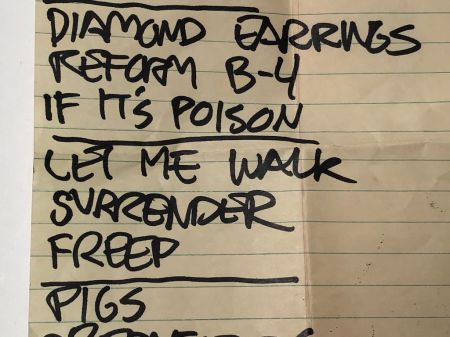 DIAMOND EARRINGS
REFORM B-4
IF IT'S POISON
LET ME WALK
SURRENDER
FREED
PIGS